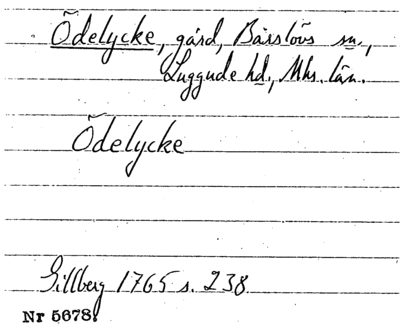 Ödelycke, gård, Bårslövs sn.,
Luggude hd., Mhs. län.
Ödelycke
Gillberg 1765 s. 238
Nr 5678.